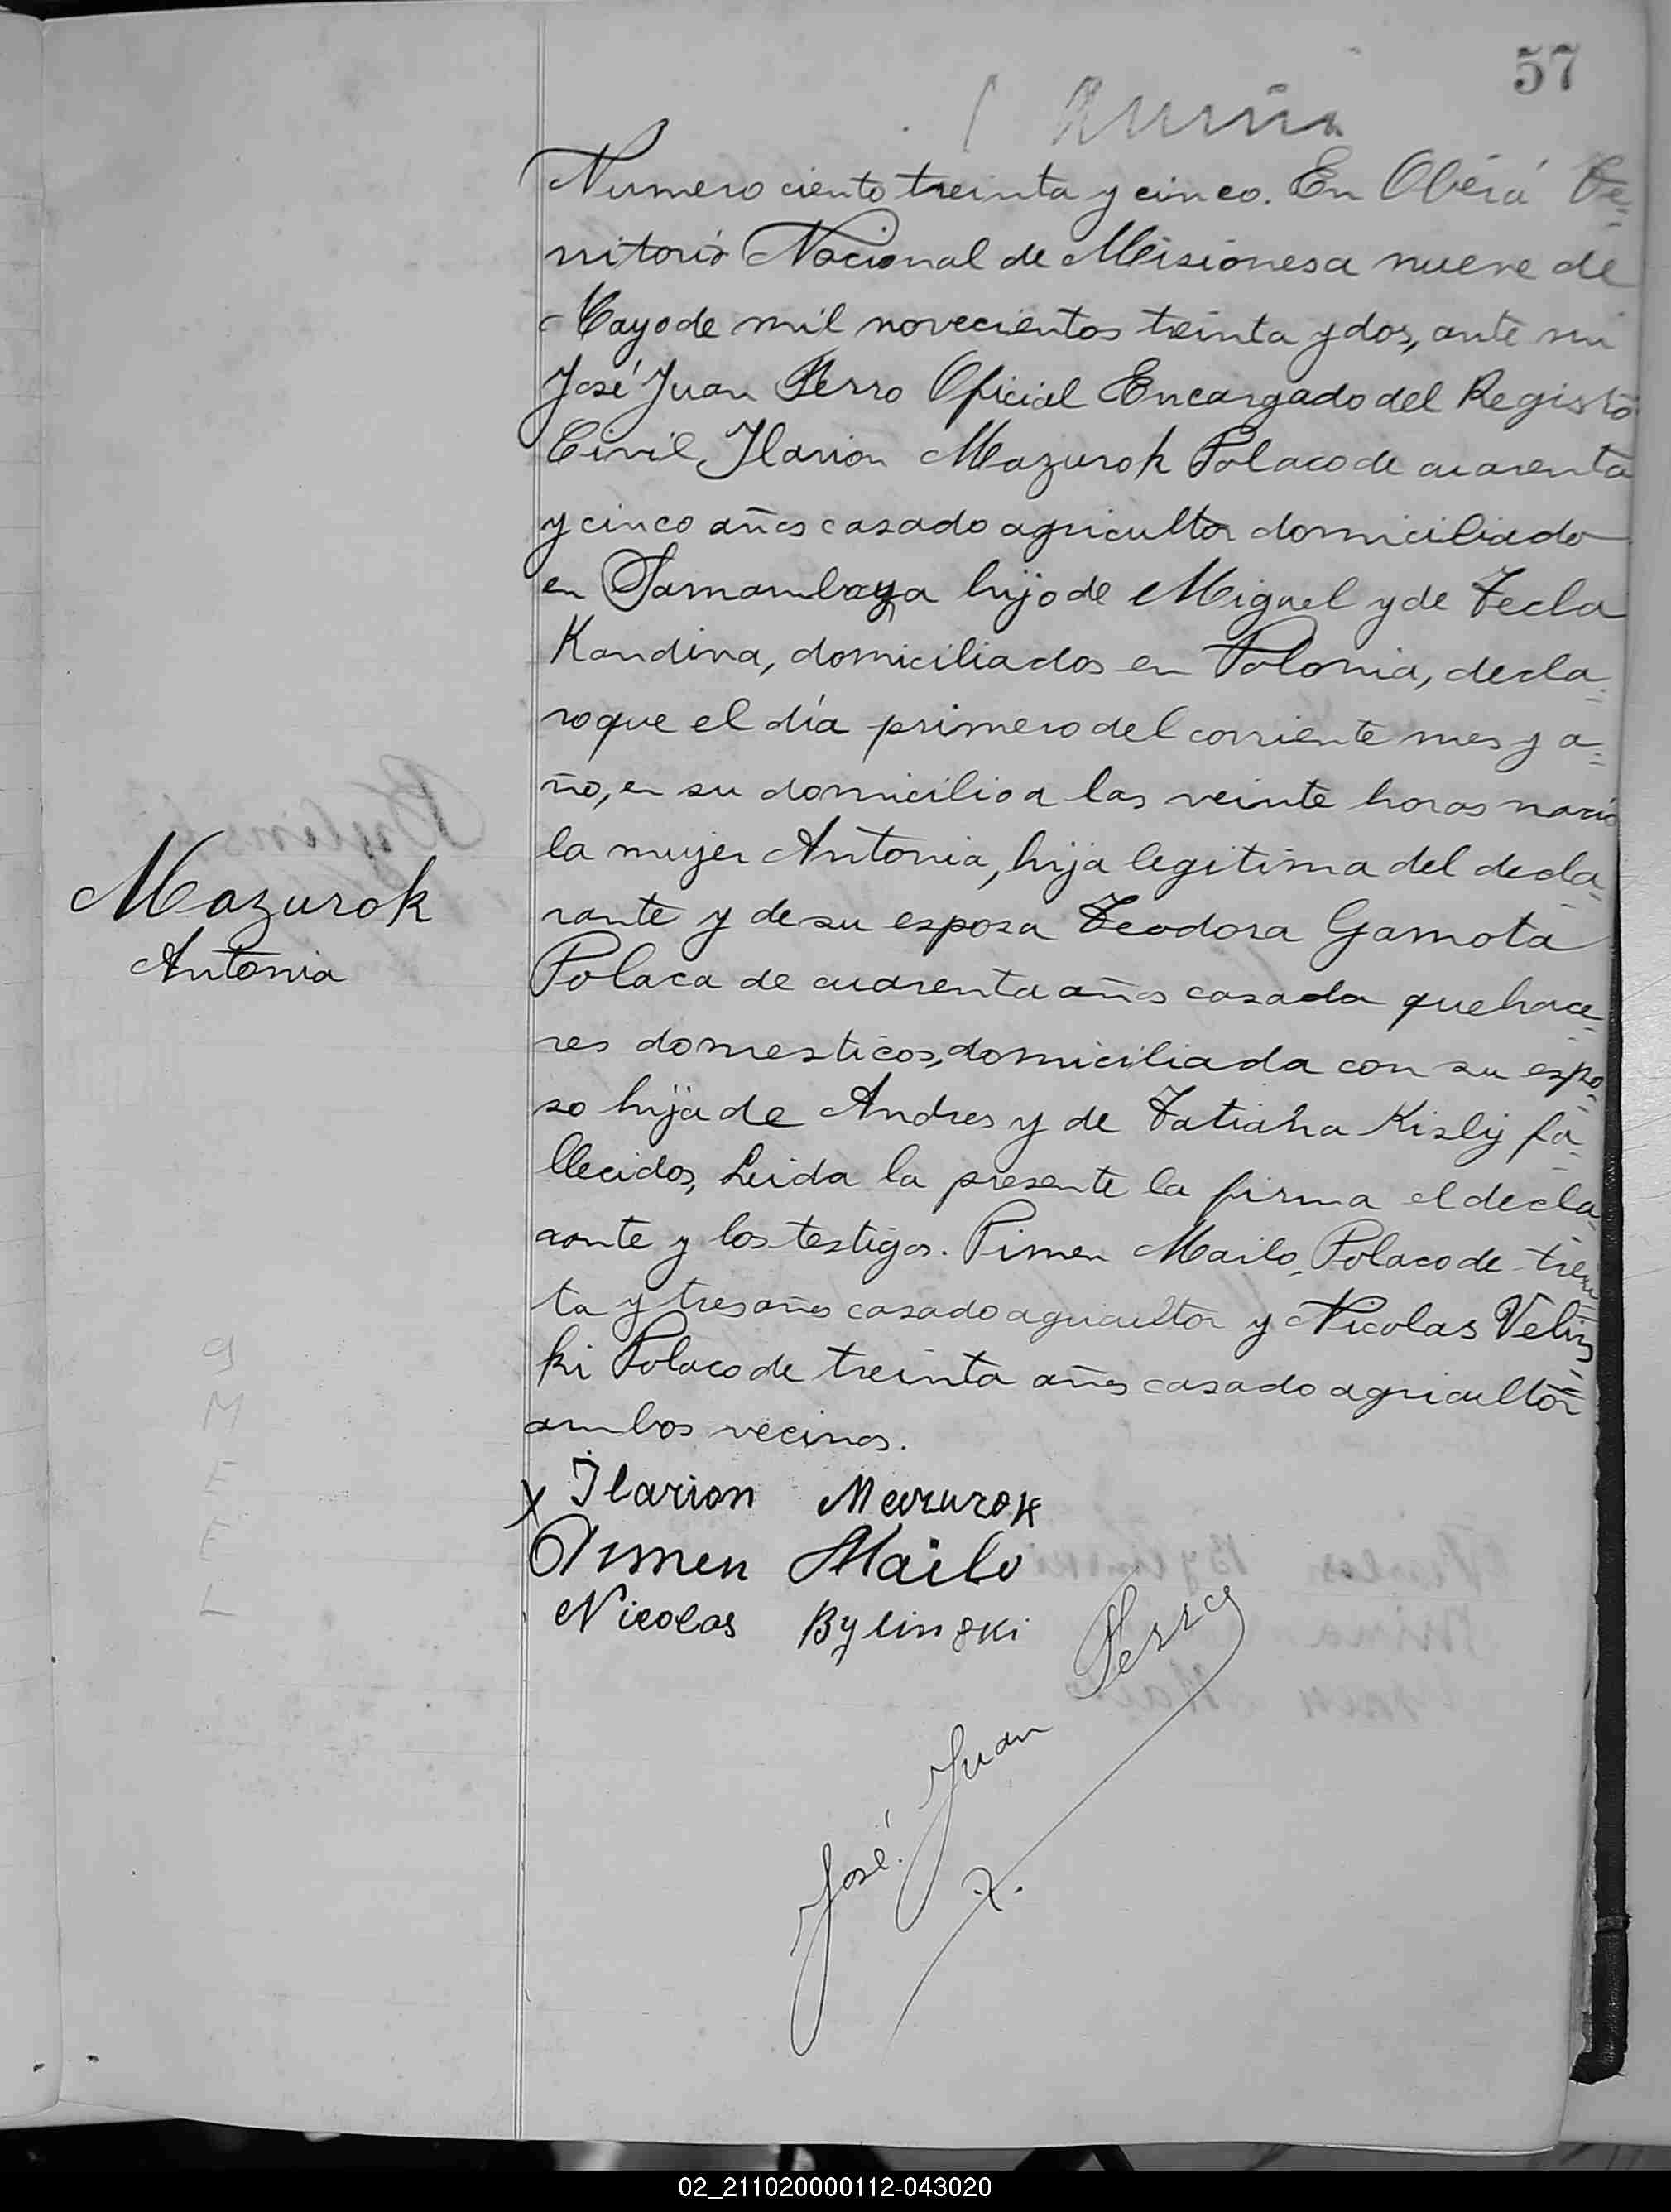 57
Numero ciento treinta y cinco. En Oberá Te=
rritorio Nacional de Misiones a nueve de
Mayo de mil novecientos treinta y dos, ante mi
José Juan Perro Oficial Encargado del Registro
Civil, Ilarion Mazurok Polaco de cuarenta
y cinco años casado agricultor domiciliado
en Samambaya hijo de Miguel y de Tecla
Kandina, domiciliados en Polonia, decla=
ro que el día primero del corriente mes y a=
ño, en su domicilio a las veinte horas nació
la mujer Antonia, hija legitima del decla=
Mazurok
Antonia
rante y de su esposa Teodora Gamota
Polaca de cuarenta años casada quehace=
res domesticos, domiciliada con su espo=
so hija de Andres y de Tatiana Kislij fa=
llecidos, Leida la presente la firma el decla=
rante y los testigos. Pimen Mailo, Polaco de trein=
ta y tres años casado agricultor y Nicolas Velins=
ki Polaco de treinta años casado agricultor
ambos vecinos.
x Ilarion Mazurok
Pimen Mailo
Nicolas Bylinski
José Juan Perro
9
M
E
E
L
02_211020000112-043020